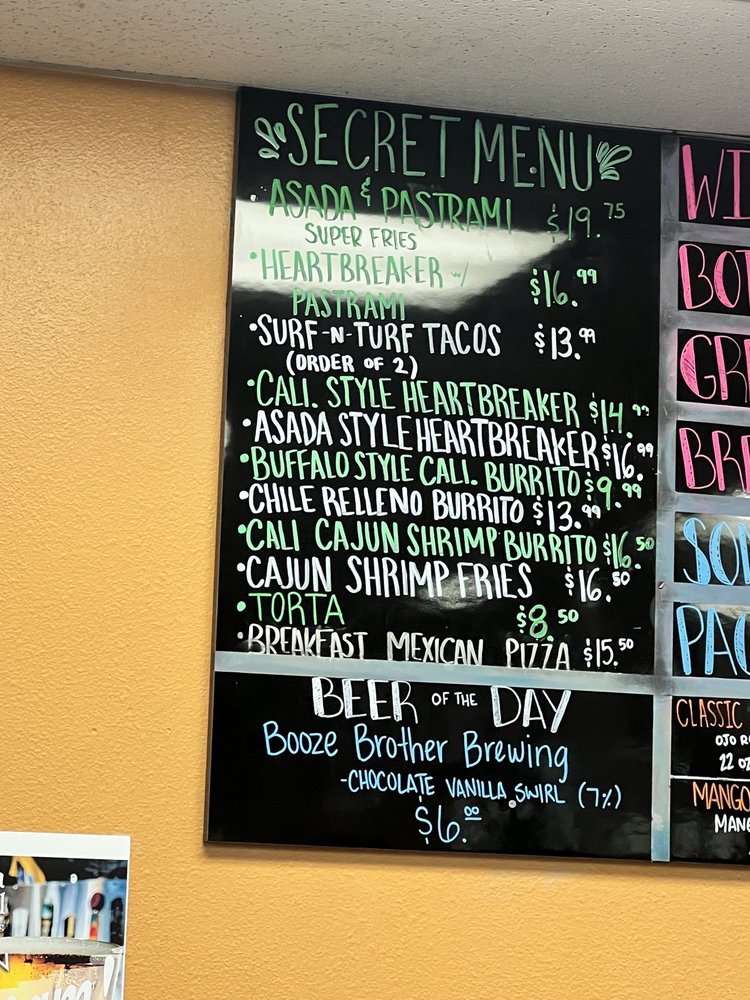 SECRET MENU
ASADA & PASTRAMI $19.75
SUPER FRIES
•HEARTBREAKER w/ $16.99
PASTRAMI
•SURF-N-TURF TACOS $13.99
(ORDER OF 2)
•CALI. STYLE HEARTBREAKER $14.99
•ASADA STYLE HEARTBREAKER $16.99
•BUFFALO STYLE CALI. BURRITO $9.99
•CHILE RELLENO BURRITO $13.99
•CALI CAJUN SHRIMP BURRITO $16.50
•CAJUN SHRIMP FRIES $16.50
•TORTA $8.50
•BREAKFAST MEXICAN PIZZA $15.50
BEER OF THE DAY
Booze Brother Brewing
-CHOCOLATE VANILLA SWIRL (7%)
$6.00
WI
BOT
GR
BR
SO
PA
CLASSIC
OJO R
22 OZ
MANGO
MAN